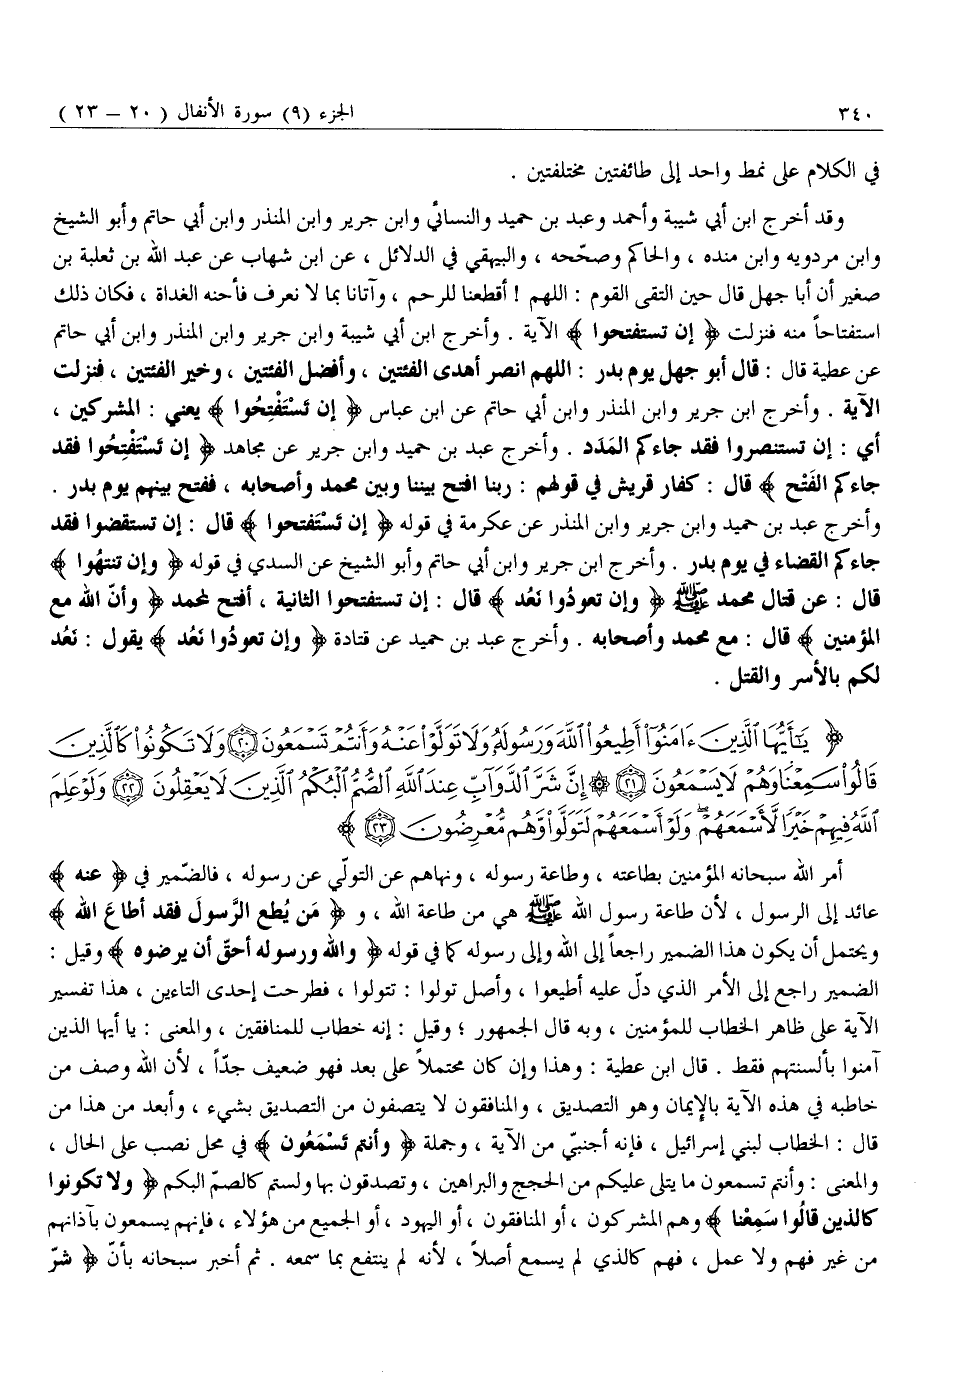 ٣٤٠ الجزء (٩) سورة الأنفال ( ٢٠ – ٢٣ )
في الكلام على نمط واحد إلى طائفتين مختلفتين .
وقد أخرج ابن أبي شيبة وأحمد وعبد بن حميد والنسائي وابن جرير وابن المنذر وابن أبي حاتم وأبو الشيخ
وابن مردويه وابن منده ، والحاكم وصحّحه ، والبيهقي في الدلائل ، عن ابن شهاب عن عبد الله بن ثعلبة بن
صغير أن أبا جهل قال حين التقى القوم : اللهم ! أقطعنا للرحم ، وآتانا بما لا نعرف فأحنه الغداة ، فكان ذلك
استفتاحاً منه فنزلت ﴿ إن تستفتحوا ﴾ الآية . وأخرج ابن أبي شيبة وابن جرير وابن المنذر وابن أبي حاتم
عن عطية قال : قال أبو جهل يوم بدر : اللهم انصر أهدى الفئتين ، وأفضل الفئتين ، وخير الفئتين ، فنزلت
الآية . وأخرج ابن جرير وابن المنذر وابن أبي حاتم عن ابن عباس ﴿ إن تَسْتَفْتِحُوا ﴾ يعني : المشركين ،
أي : إن تستنصروا فقد جاءكم المَدَد . وأخرج عبد بن حميد وابن جرير عن مجاهد ﴿ إن تَسْتَفْتِحُوا فقد
جاءكم الفَتْح ﴾ قال : كفار قريش في قولهم : ربنا افتح بيننا وبين محمد وأصحابه ، ففتح بينهم يوم بدر .
وأخرج عبد بن حميد وابن جرير وابن المنذر عن عكرمة في قوله ﴿ إن تَسْتَفتحوا ﴾ قال : إن تستقضوا فقد
جاءكم القضاء في يوم بدر . وأخرج ابن جرير وابن أبي حاتم وأبو الشيخ عن السدي في قوله ﴿ وإن تنتهُوا ﴾
قال : عن قتال محمد ﷺ ﴿ وإن تعودُوا نَعُد ﴾ قال : إن تستفتحوا الثانية ، أفتح لمحمد ﴿ وأنّ الله مع
المؤمنين ﴾ قال : مع محمد وأصحابه . وأخرج عبد بن حميد عن قتادة ﴿ وإن تعودُوا نَعُد ﴾ يقول : نَعُد
لكم بالأسر والقتل .
﴿ يَٰٓأَيُّهَا ٱلَّذِينَ ءَامَنُوٓا۟ أَطِيعُوا۟ ٱللَّهَ وَرَسُولَهُۥ وَلَا تَوَلَّوْا۟ عَنْهُ وَأَنتُمْ تَسْمَعُونَ ٢٠ وَلَا تَكُونُوا۟ كَٱلَّذِينَ
قَالُوا۟ سَمِعْنَا وَهُمْ لَا يَسْمَعُونَ ٢١ ۞ إِنَّ شَرَّ ٱلدَّوَآبِّ عِندَ ٱللَّهِ ٱلصُّمُّ ٱلْبُكْمُ ٱلَّذِينَ لَا يَعْقِلُونَ ٢٢ وَلَوْ عَلِمَ
ٱللَّهُ فِيهِمْ خَيْرًا لَّأَسْمَعَهُمْ ۖ وَلَوْ أَسْمَعَهُمْ لَتَوَلَّوا۟ وَّهُم مُّعْرِضُونَ ٢٣ ﴾
أمر الله سبحانه المؤمنين بطاعته ، وطاعة رسوله ، ونهاهم عن التولّي عن رسوله ، فالضّمير في ﴿ عنه ﴾
عائد إلى الرسول ، لأن طاعة رسول الله ﷺ هي من طاعة الله ، و ﴿ مَن يُطع الرَّسولَ فقد أطاعَ الله ﴾
ويحتمل أن يكون هذا الضمير راجعاً إلى الله وإلى رسوله كما في قوله ﴿ والله ورسوله أحقّ أن يرضوه ﴾ وقيل :
الضمير راجع إلى الأمر الذي دلّ عليه أطيعوا ، وأصل تولوا : تتولوا ، فطرحت إحدى التاءين ، هذا تفسير
الآية على ظاهر الخطاب للمؤمنين ، وبه قال الجمهور ؛ وقيل : إنه خطاب للمنافقين ، والمعنى : يا أيها الذين
آمنوا بألسنتهم فقط . قال ابن عطية : وهذا وإن كان محتملاً على بعد فهو ضعيف جدّاً ، لأن الله وصف من
خاطبه في هذه الآية بالإيمان وهو التصديق ، والمنافقون لا يتصفون من التصديق بشيء ، وأبعد من هذا من
قال : الخطاب لبني إسرائيل ، فإنه أجنبيّ من الآية ، وجملة ﴿ وأنتم تَسْمَعُون ﴾ في محل نصب على الحال ،
والمعنى : وأنتم تسمعون ما يتلى عليكم من الحجج والبراهين ، وتصدقون بها ولستم كالصمّ البكم ﴿ ولا تكونوا
كالذين قالُوا سَمِعْنا ﴾ وهم المشركون ، أو المنافقون ، أو اليهود ، أو الجميع من هؤلاء ، فإنهم يسمعون بآذانهم
من غير فهم ولا عمل ، فهم كالذي لم يسمع أصلاً ، لأنه لم ينتفع بما سمعه . ثم أخبر سبحانه بأنّ ﴿ شرّ